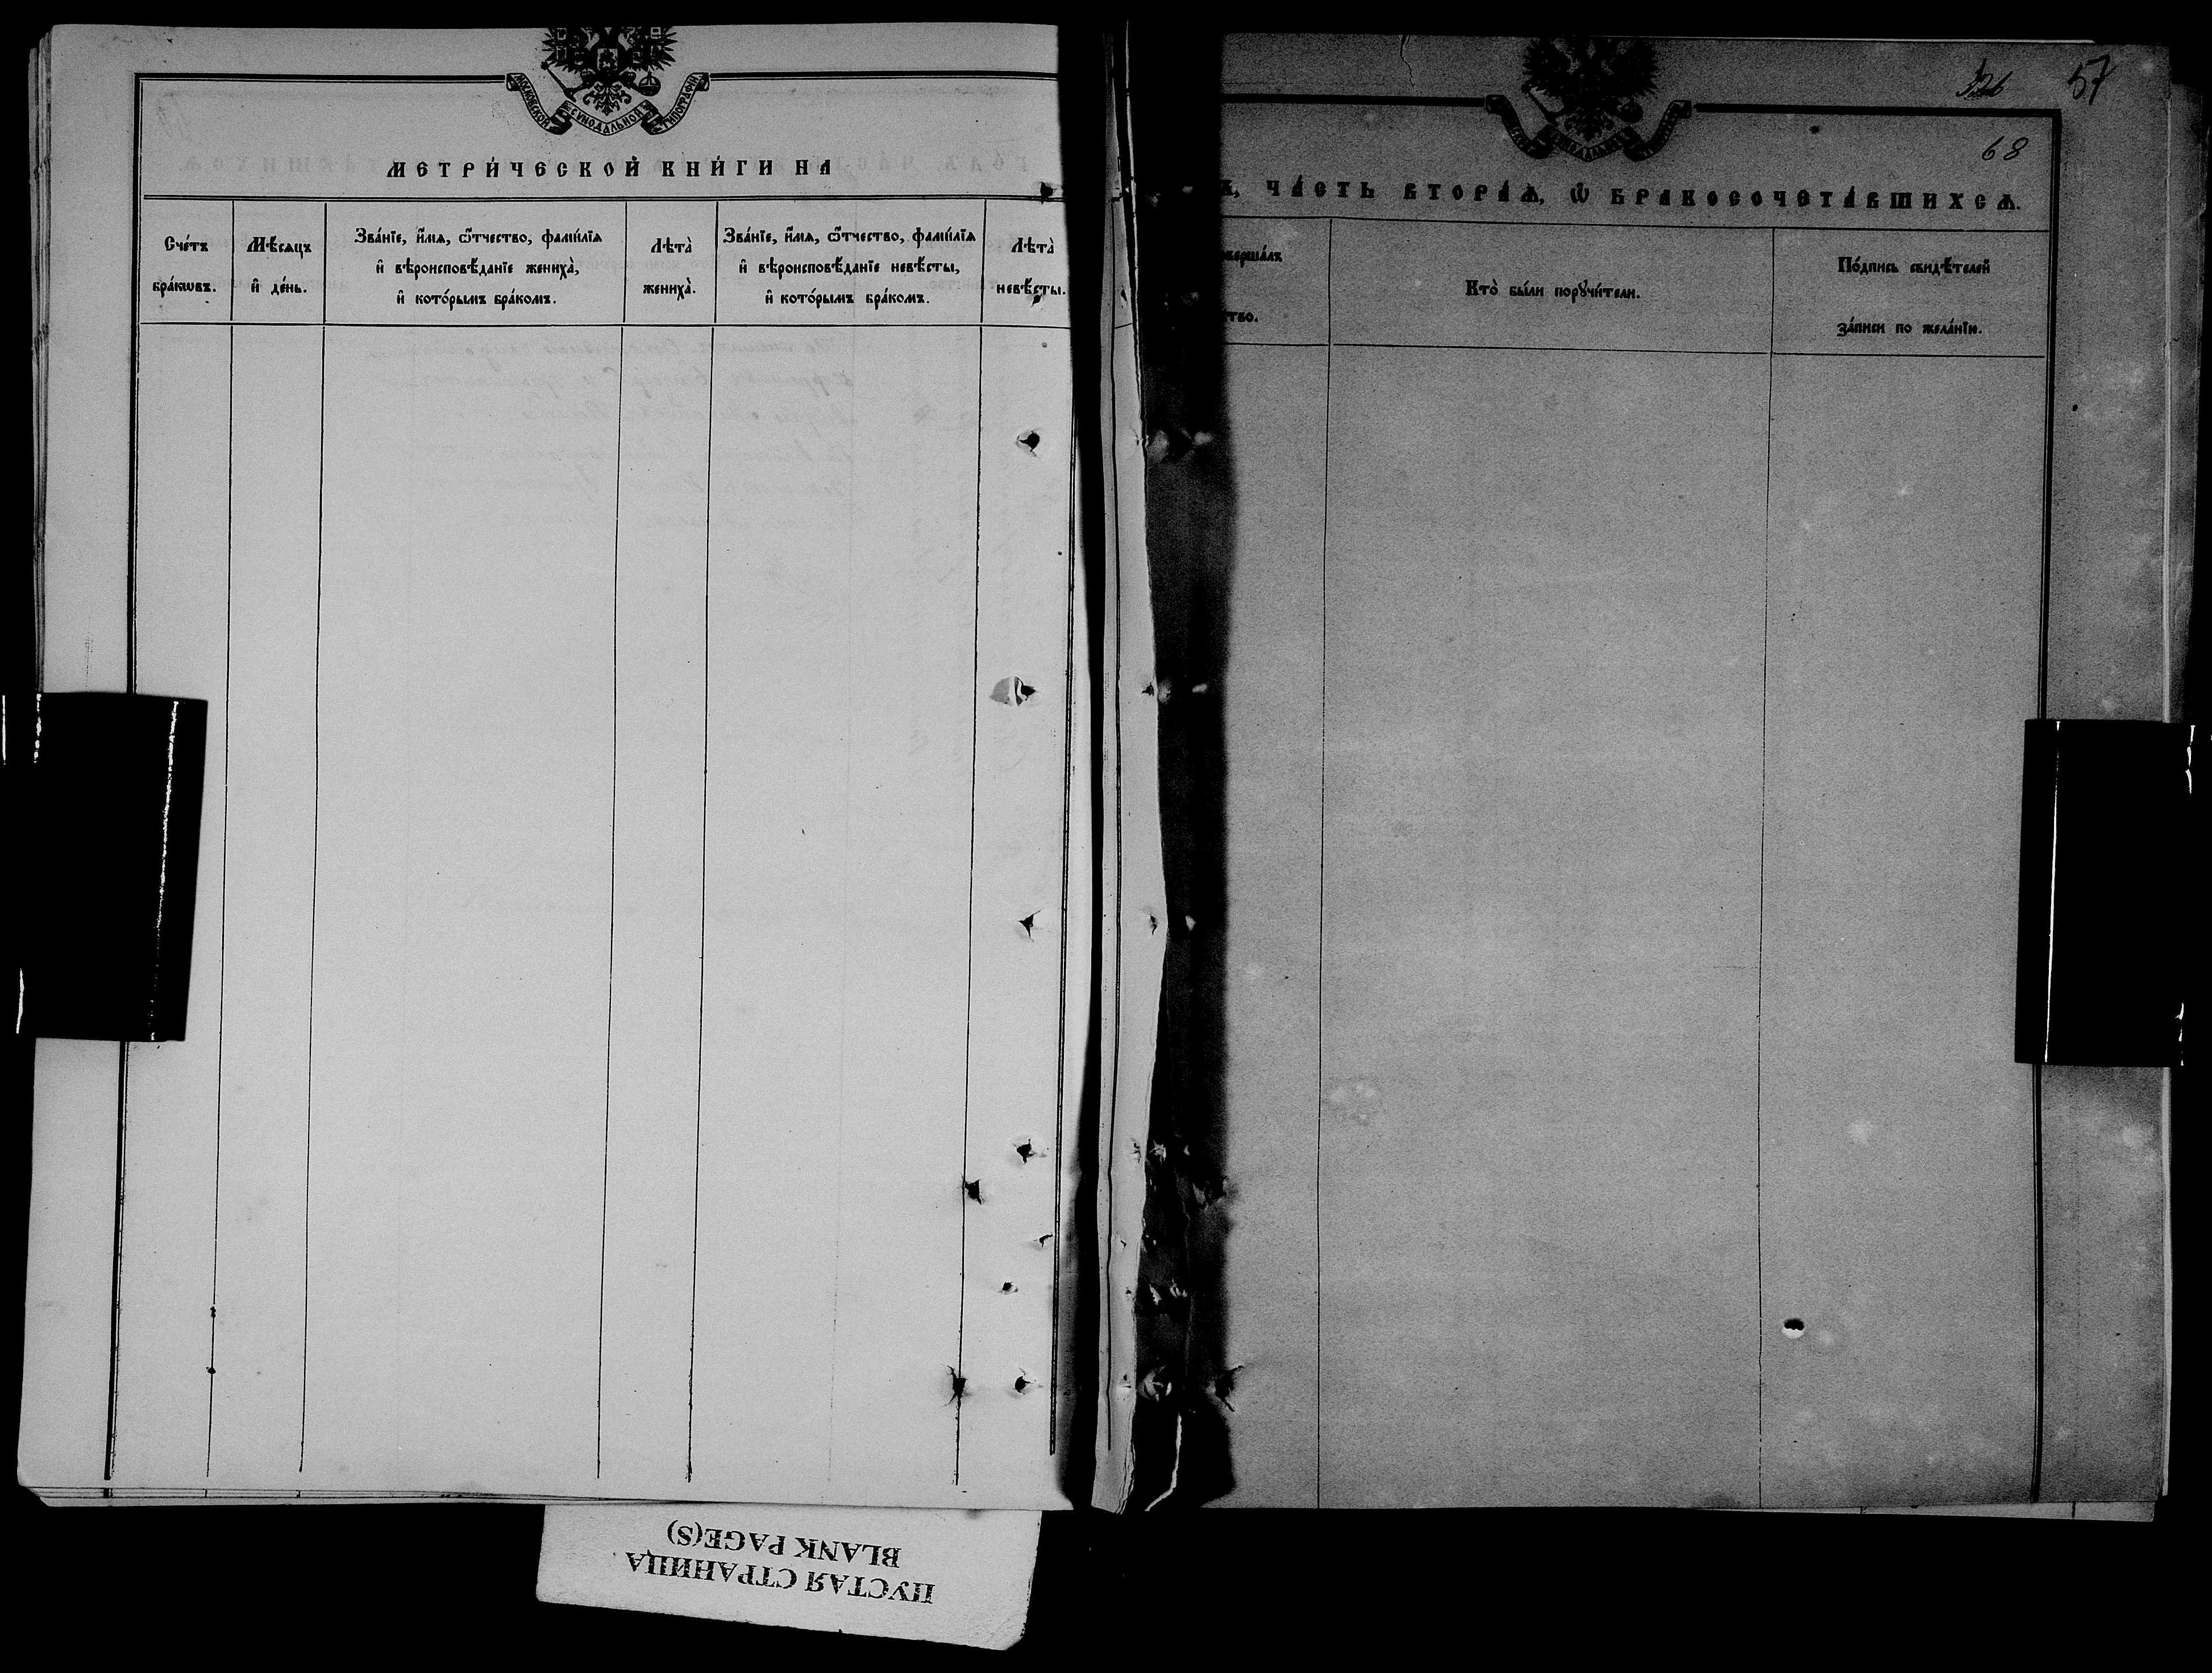 МОСКОВСКОЙ СѴНОДАЛЬНОЙ ТИПОГРАФІИ
МЕТРИ́ЧЕСКОЙ КНИ́ГИ НА
Сче́тъ
бра́кѡвъ.
Мѣ́сяцъ
и҆ де́нь.
Зва́нїе, и҆́мя, ѻ҆́тчество, фами́лїя
и҆ вѣроисповѣ́данїе жениха̀,
и҆ кото́рымъ бра́комъ.
Лѣта̀
жениха̀.
Зва́нїе, и҆́мя, ѻ҆́тчество, фами́лїя
и҆ вѣроисповѣ́данїе невѣ́сты,
и҆ кото́рымъ бра́комъ.
Лѣта̀
невѣ́сты.
326 57
68
ЧА́СТЬ ВТОРА́Ѧ, Ѽ БРАКОСОЧЕТА́ВШИХСѦ.
оверша́лъ
тво.
Кто̀ бы́ли порꙋчи́тели.
По́дпись свидѣ́телей
за́писи по жела́нїи.
ПУСТАЯ СТРАНИЦА
BLANK PAGE(S)